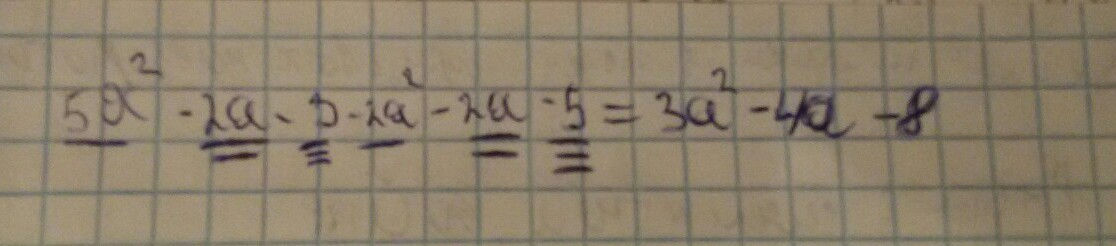 5a² - 2a - 3 - 2a² - 2a - 5 = 3a² - 4a - 8